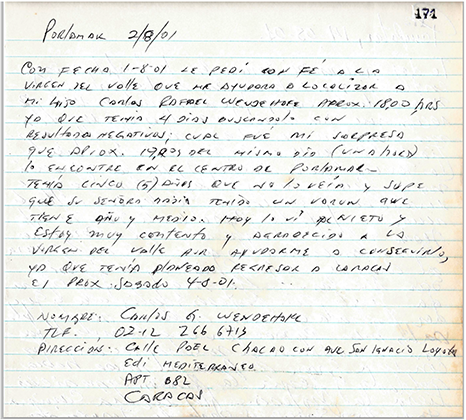 171
Porlamar 2/8/01
Con fecha 1-8-01 le pedí con fé a la
Virgen del Valle que me ayudara a localizar a
mi hijo Carlos Rafael Wendehake aprox. 18,00 hrs
ya que tenia 4 dias buscandolo con
resultados negativos; cual fué mi sorpresa
que aprox. 19,00 del mismo día (una hora)
lo encontre en el centro de Porlamar
tenia cinco (5) años que no lo veía y supe
que su señora había tenido un varon que
tiene año y medio. Hoy lo ví al nieto y
estoy muy contento y agradecido a la
Virgen del Valle por ayudarme a conseguirlo,
ya que tenía planeado regresar a Caracas
el prox. sabado 4-8-01.
Nombre: Carlos G. Wendehake
Tlf. 0212 266 6713
Dirección: Calle Chacao con Ave San Ignacio Loyola
Edi Mediterraneo
Apt 082
Caracas